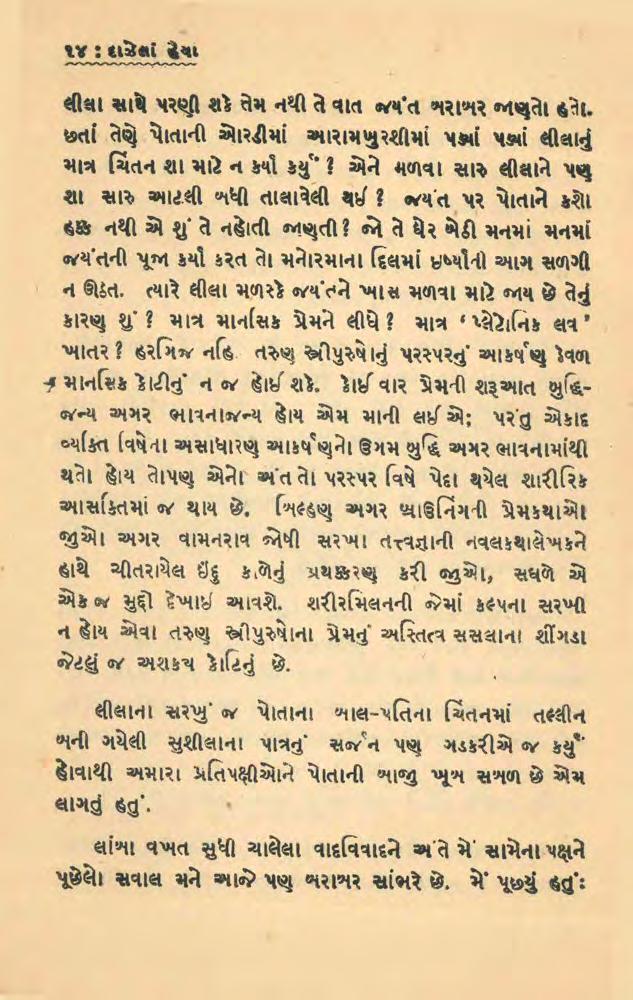 ૨૪ : દાઝેલાં હૈયા
લીલા સાથે પરણી શકે તેમ નથી તે વાત જયંત બરાબર જાણતો હતો.
છતાં તેણે પોતાની ઓરડીમાં આરામખુરશીમાં પડ્યાં પડ્યાં લીલાનું
માત્ર ચિંતન શા માટે ન કર્યા કર્યું ? એને મળવા સારુ લીલાને પણ
શા સારુ આટલી બધી તાલાવેલી થઈ ? જયંત પર પોતાને કશો
હક્ક નથી એ શું તે નહોતી જાણતી ? જો તે ઘેર બેઠી મનમાં મનમાં
જયંતની પૂજા કર્યા કરત તો મનોરમાના દિલમાં ઇર્ષ્યાની આગ સળગી
ન ઊઠત. ત્યારે લીલા મળસ્કે જયંતને ખાસ મળવા માટે જાય છે તેનું
કારણ શું ? માત્ર માનસિક પ્રેમને લીધે ? માત્ર ‘ પ્લેટોનિક લવ ’
ખાતર ? હરગિજ નહિ તરુણ સ્ત્રીપુરુષોનું પરસ્પરનું આકર્ષણ કેવળ
માનસિક કોટીનું ન જ હોઈ શકે. કોઈ વાર પ્રેમની શરૂઆત બુદ્ધિ-
જન્ય અગર ભાવનાજન્ય હોય એમ માની લઈએ; પરંતુ એકાદ
વ્યક્તિ વિષેના અસાધારણ આકર્ષણનો ઉગમ બુદ્ધિ અગર ભાવનામાંથી
થતો હોય તોપણ એનો અંત તો પરસ્પર વિષે પેદા થયેલ શારીરિક
આસક્તિમાં જ થાય છે. બિલ્હણ અગર બ્રાઉનિંગની પ્રેમકથાઓ
જુઓ અગર વામનરાવ જોષી સરખા તત્ત્વજ્ઞાની નવલકથાલેખકને
હાથે ચીતરાયેલ ઇંદુ કાળેનું પ્રથક્કરણ કરી જુઓ, સઘળે એ
એક જ મુદ્દો દેખાઇ આવશે. શરીરમિલનની જેમાં કલ્પના સરખી
ન હોય એવા તરુણ સ્ત્રીપુરુષોના પ્રેમનું અસ્તિત્વ સસલાના શીંગડા
જેટલું જ અશક્ય કોટિનું છે.
લીલાના સરખું જ પોતાના બાલ-પતિના ચિંતનમાં તલ્લીન
બની ગયેલી સુશીલાના પાત્રનું સર્જન પણ ગડકરીએ જ કર્યું
હોવાથી અમારા પ્રતિપક્ષીઓને પોતાની બાજુ ખૂબ સબળ છે એમ
લાગતું હતું.
લાંબા વખત સુધી ચાલેલા વાદવિવાદને અંતે મેં સામેના પક્ષને
પૂછેલો સવાલ મને આજે પણ બરાબર સાંભરે છે. મેં પૂછ્યું હતું: